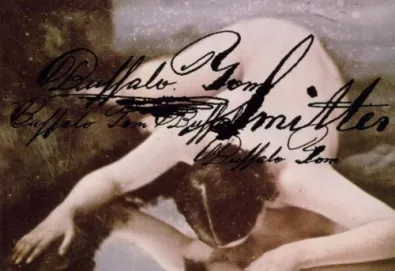 Buffalo Tom
Smitten
Buffalo Tom Buffalo
Buffalo Tom